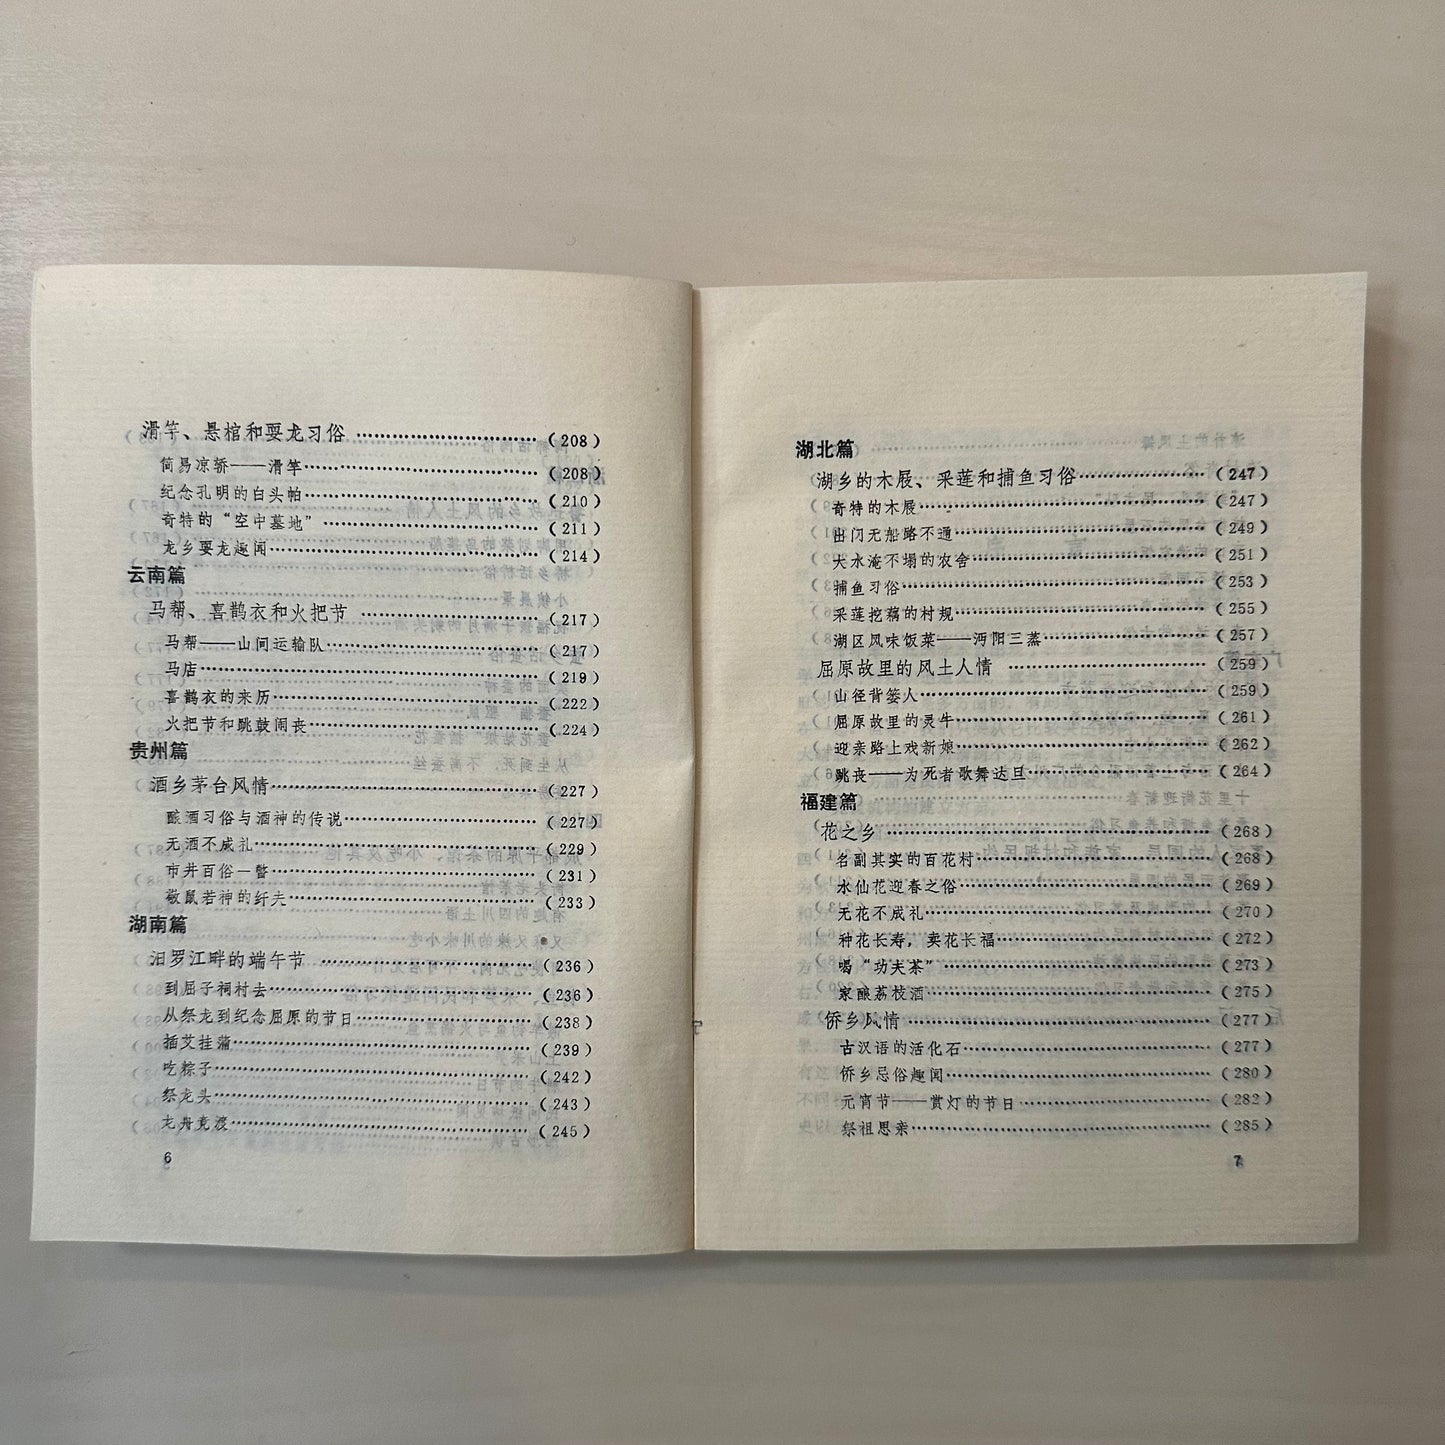 滑竿、悬棺和耍龙习俗 ……………………… (208)
简易凉轿——滑竿……………………………… (208)
纪念孔明的白头帕……………………………… (210)
奇特的“空中墓地” …………………………… (211)
龙乡耍龙趣闻…………………………………… (214)
云南篇
马帮、喜鹊衣和火把节 ……………………… (217)
马帮——山间运输队…………………………… (217)
马店……………………………………………… (219)
喜鹊衣的来历…………………………………… (222)
火把节和跳鼓闹丧……………………………… (224)
贵州篇
酒乡茅台风情…………………………………… (227)
酿酒习俗与酒神的传说………………………… (227)
无酒不成礼……………………………………… (229)
市井百俗一瞥…………………………………… (231)
敬鼠若神的纤夫………………………………… (233)
湖南篇
汨罗江畔的端午节 …………………………… (236)
到屈子祠村去…………………………………… (236)
从祭龙到纪念屈原的节日……………………… (238)
插艾挂蒲………………………………………… (239)
吃粽子…………………………………………… (242)
祭龙头…………………………………………… (243)
龙舟竞渡………………………………………… (245)
6
湖北篇
湖乡的木屐、采莲和捕鱼习俗………………… (247)
奇特的木屐……………………………………… (247)
出门无船路不通………………………………… (249)
大水淹不塌的农舍……………………………… (251)
捕鱼习俗………………………………………… (253)
采莲挖藕的村规………………………………… (255)
湖区风味饭菜——沔阳三蒸…………………… (257)
屈原故里的风土人情 ………………………… (259)
山径背篓人……………………………………… (259)
屈原故里的灵牛………………………………… (261)
迎亲路上戏新娘………………………………… (262)
跳丧——为死者歌舞达旦……………………… (264)
福建篇
花之乡 ………………………………………… (268)
名副其实的百花村……………………………… (268)
水仙花迎春之俗………………………………… (269)
无花不成礼……………………………………… (270)
种花长寿，卖花长福…………………………… (272)
喝“功夫茶” …………………………………… (273)
家酿荔枝酒……………………………………… (275)
侨乡风情 ……………………………………… (277)
古汉语的活化石………………………………… (277)
侨乡忌俗趣闻…………………………………… (280)
元宵节——赏灯的节日………………………… (282)
祭祖思亲………………………………………… (285)
7